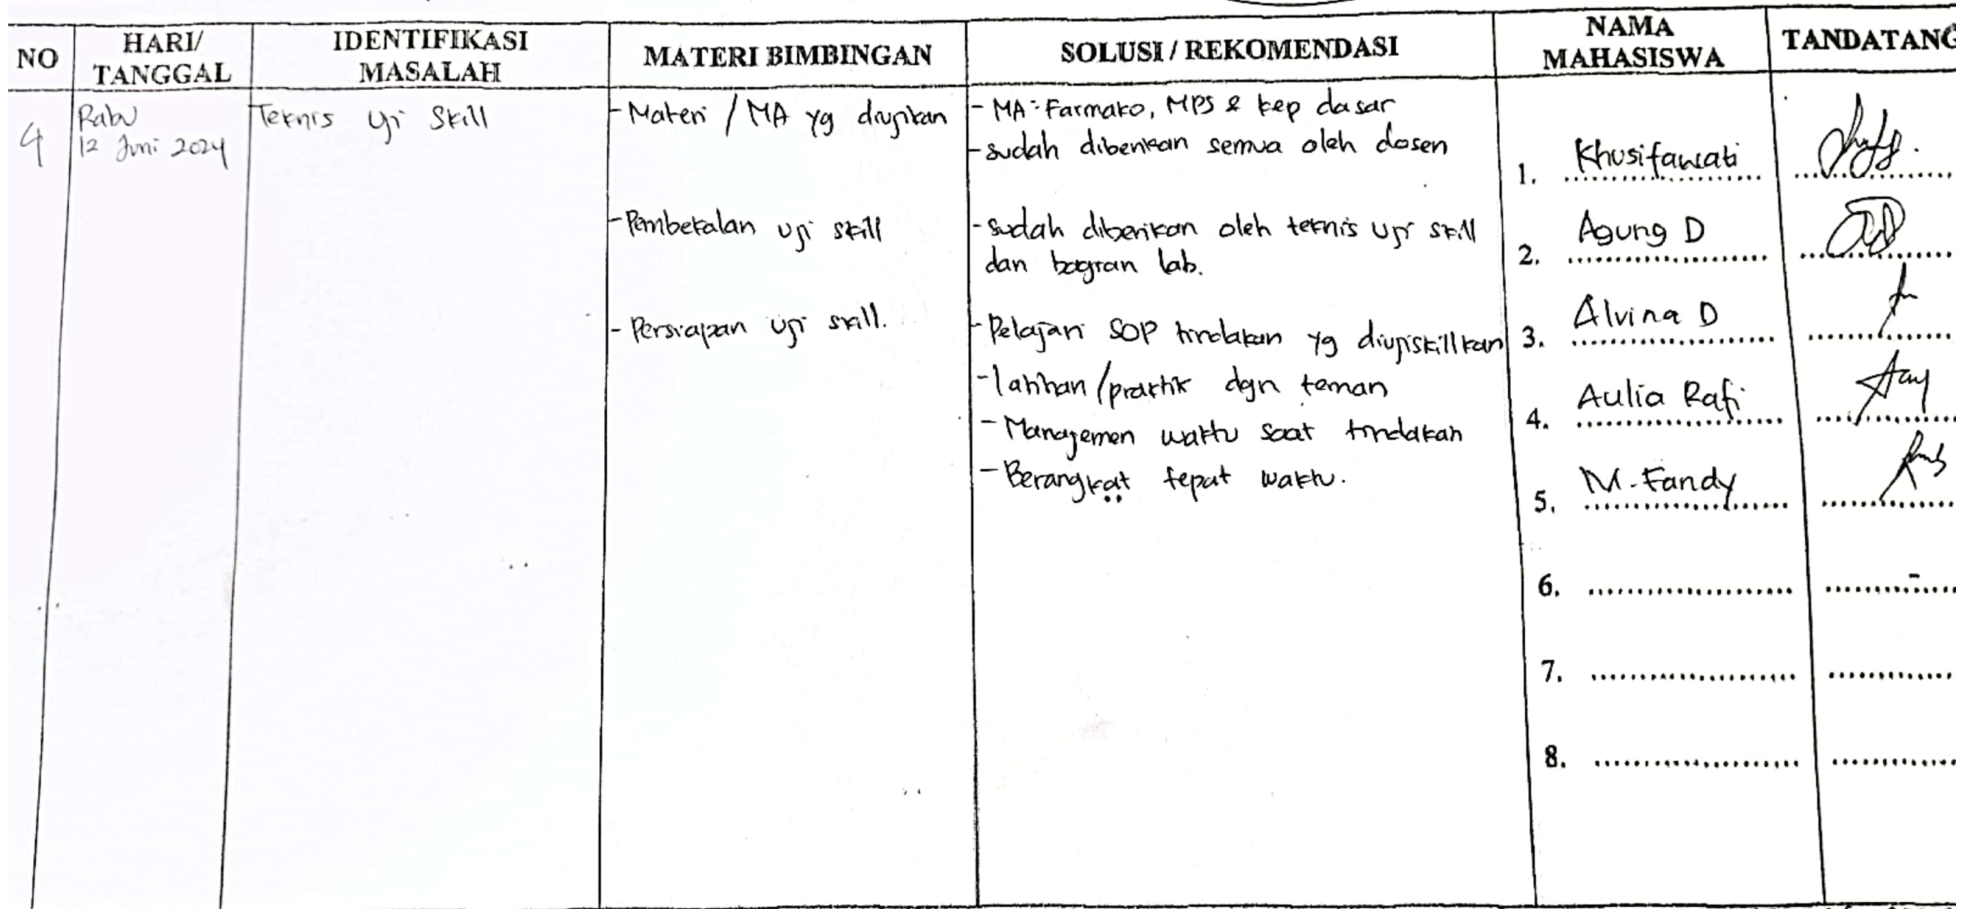 NO
HARI/
TANGGAL
IDENTIFIKASI
MASALAH
MATERI BIMBINGAN
SOLUSI / REKOMENDASI
NAMA
MAHASISWA
TANDATANG
4
Rabu
12 Juni 2024
Teknis Uji Skill
- Materi / MA yg diujikan
- Pembekalan uji skill
- Persiapan uji skill.
- MA : Farmako, MPS & kep dasar
- sudah diberikan semua oleh dosen
- sudah diberikan oleh teknis uji skill
dan bagian lab.
- Pelajari SOP tindakan yg diujiskillkan
- latihan / praktik dgn teman
- Managemen waktu saat tindakan
- Berangkat tepat waktu.
1. Khusifawati
2. Agung D
3. Alvina D
4. Aulia Rafi
5. M. Fandy
6.
7.
8.